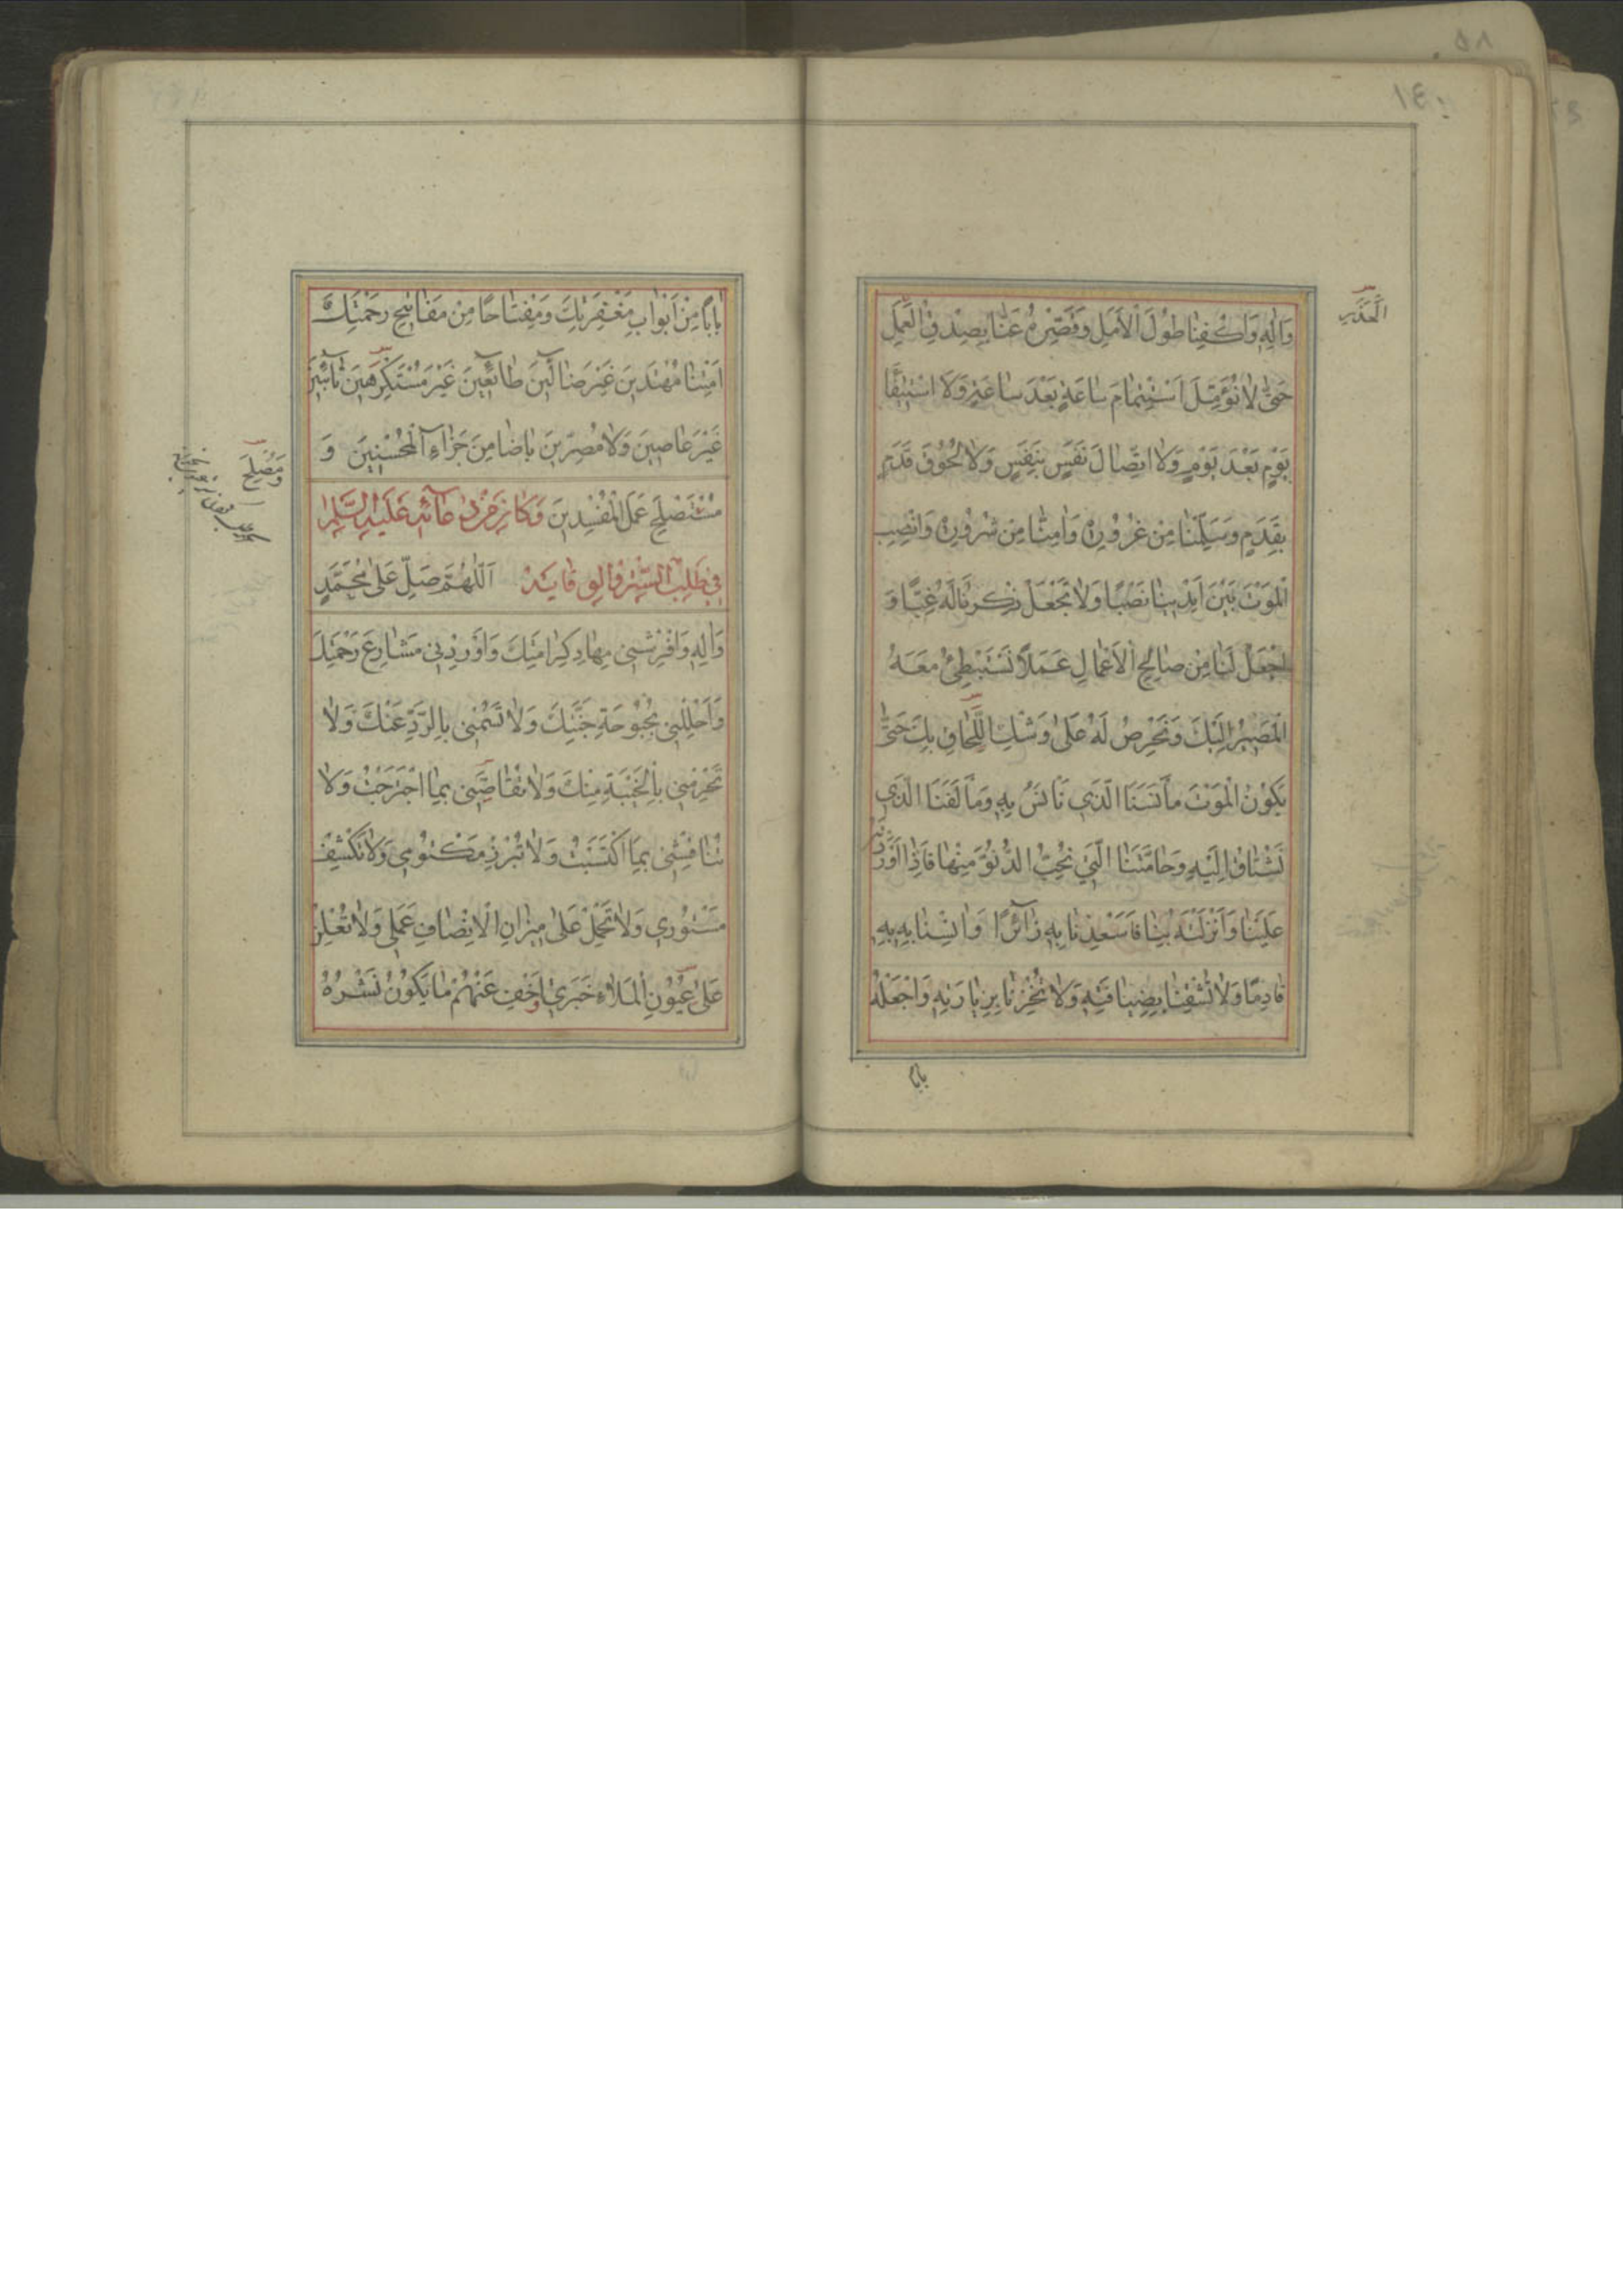 وَاٰلِهِ وَاكْفِنَا طُولَ الْاَمَلِ وَقَصِّرْهُ عَنَّا بِصِدْقِ الْعَمَلِ
حَتّٰى لَا نُؤَمِّلَ اسْتِتْمَامَ سَاعَةٍ بَعْدَ سَاعَةٍ وَلَا اسْتِيفَاءَ
يَوْمٍ بَعْدَ يَوْمٍ وَلَا اتِّصَالَ نَفَسٍ بِنَفَسٍ وَلَا لُحُوقَ قَدَمٍ
بِقَدَمٍ وَسَلِّمْنَا مِنْ غُرُورِهِ وَاٰمِنَّا مِنْ شُرُورِهِ وَانْصِبِ
الْمَوْتَ بَيْنَ اَيْدِينَا نَصْبًا وَلَا تَجْعَلْ ذِكْرَنَا لَهُ غِبًّا وَ
اجْعَلْ لَنَا مِنْ صَالِحِ الْاَعْمَالِ عَمَلًا نَسْتَبْطِئُ مَعَهُ
الْمَصِيرَ اِلَيْكَ وَنَحْرِصُ لَهُ عَلٰى وَشْكِ اللَّحَاقِ بِكَ حَتّٰى
يَكُونَ الْمَوْتُ مَأْنَسَنَا الَّذِي نَأْنَسُ بِهِ وَمَأْلَفَنَا الَّذِي
نَشْتَاقُ اِلَيْهِ وَحَامَّتَنَا الَّتِي نُحِبُّ الدُّنُوَّ مِنْهَا فَاِذَا اَوْرَدْتَهُ
عَلَيْنَا وَاَنْزَلْتَهُ بِنَا فَاَسْعِدْنَا بِهِ زَائِرًا وَاٰنِسْنَا بِهِ
قَادِمًا وَلَا تُشْقِنَا بِضِيَافَتِهِ وَلَا تُخْزِنَا بِزِيَارَتِهِ وَاجْعَلْهُ
بابا
بَابًا مِنْ اَبْوَابِ مَغْفِرَتِكَ وَمِفْتَاحًا مِنْ مَفَاتِيحِ رَحْمَتِكَ
اَمِتْنَا مُهْتَدِينَ غَيْرَ ضَالِّينَ طَائِعِينَ غَيْرَ مُسْتَكْرِهِينَ تَائِبِينَ
غَيْرَ عَاصِينَ وَلَا مُصِرِّينَ يَا ضَامِنَ جَزَاءِ الْمُحْسِنِينَ وَ
مُسْتَصْلِحَ عَمَلِ الْمُفْسِدِينَ وَكَانَ مِنْ دُعَائِهِ عَلَيْهِ السَّلَامُ
فِي طَلَبِ السِّتْرِ وَالْوِقَايَةِ اَللّٰهُمَّ صَلِّ عَلٰى مُحَمَّدٍ
وَاٰلِهِ وَافْرِشْنِي مِهَادَ كَرَامَتِكَ وَاَوْرِدْنِي مَشَارِعَ رَحْمَتِكَ
وَاَحْلِلْنِي بُحْبُوحَةَ جَنَّتِكَ وَلَا تَسُمْنِي بِالرَّدِّ عَنْكَ وَلَا
تَحْرِمْنِي بِالْخَيْبَةِ مِنْكَ وَلَا تُقَاصَّنِي بِمَا اجْتَرَحْتُ وَلَا
تُنَاقِشْنِي بِمَا اكْتَسَبْتُ وَلَا تُبْرِزْ مَكْتُومِي وَلَا تَكْشِفْ
مَسْتُورِي وَلَا تَحْمِلْ عَلٰى مِيزَانِ الْاِنْصَافِ عَمَلِي وَلَا تُعْلِنْ
عَلٰى عُيُونِ الْمَلَاءِ خَبَرِي وَاَخْفِ عَنْهُمْ مَا يَكُونُ نَشْرُهُ
وَمُصْلِحَ